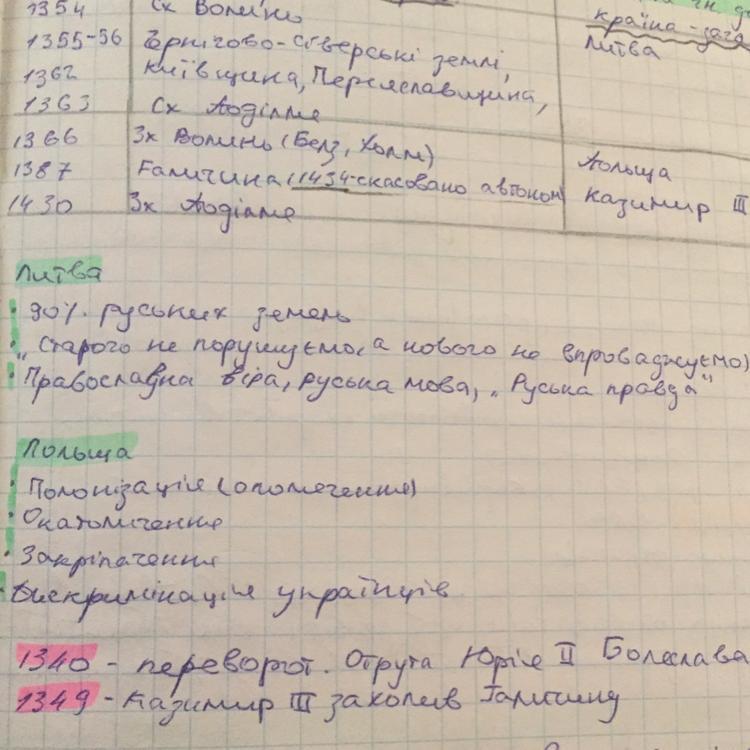 1354 Сх Волинь
країна-
1355-56 Чернігово-Сіверські землі,
Литва
1362 Київщина, Переяславщина,
1363 Сх Поділля
1366 Зх Волинь (Белз, Холм)
Польща
1387 Галичина (1434-скасовано автоном
Казимир III
1430 Зх Поділля
Литва
· 90% руських земель
· "Старого не порушуємо, а нового не впроваджуємо)
· Православна віра, руська мова, "Руська правда"
Польща
· Полонізація (ополячення)
· Окатоличення
· Закріпачення
· Дискримінація українців
1340 - переворот. Отрута Юрія II Болеслава
1349 - Казимир III захопив Галичину